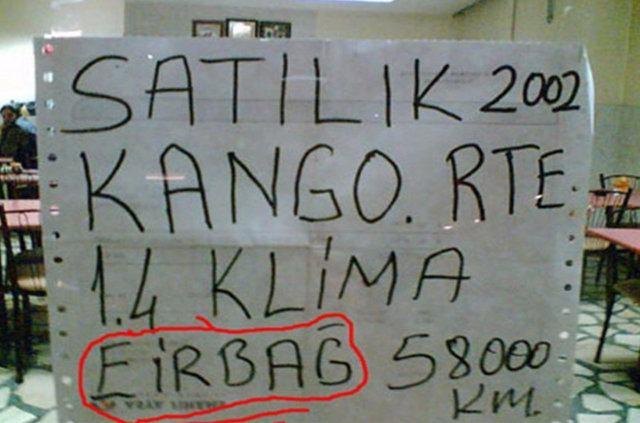 SATILIK 2002
KANGO. RTE
1.4 KLİMA
EİRBAĞ 58000
KM.